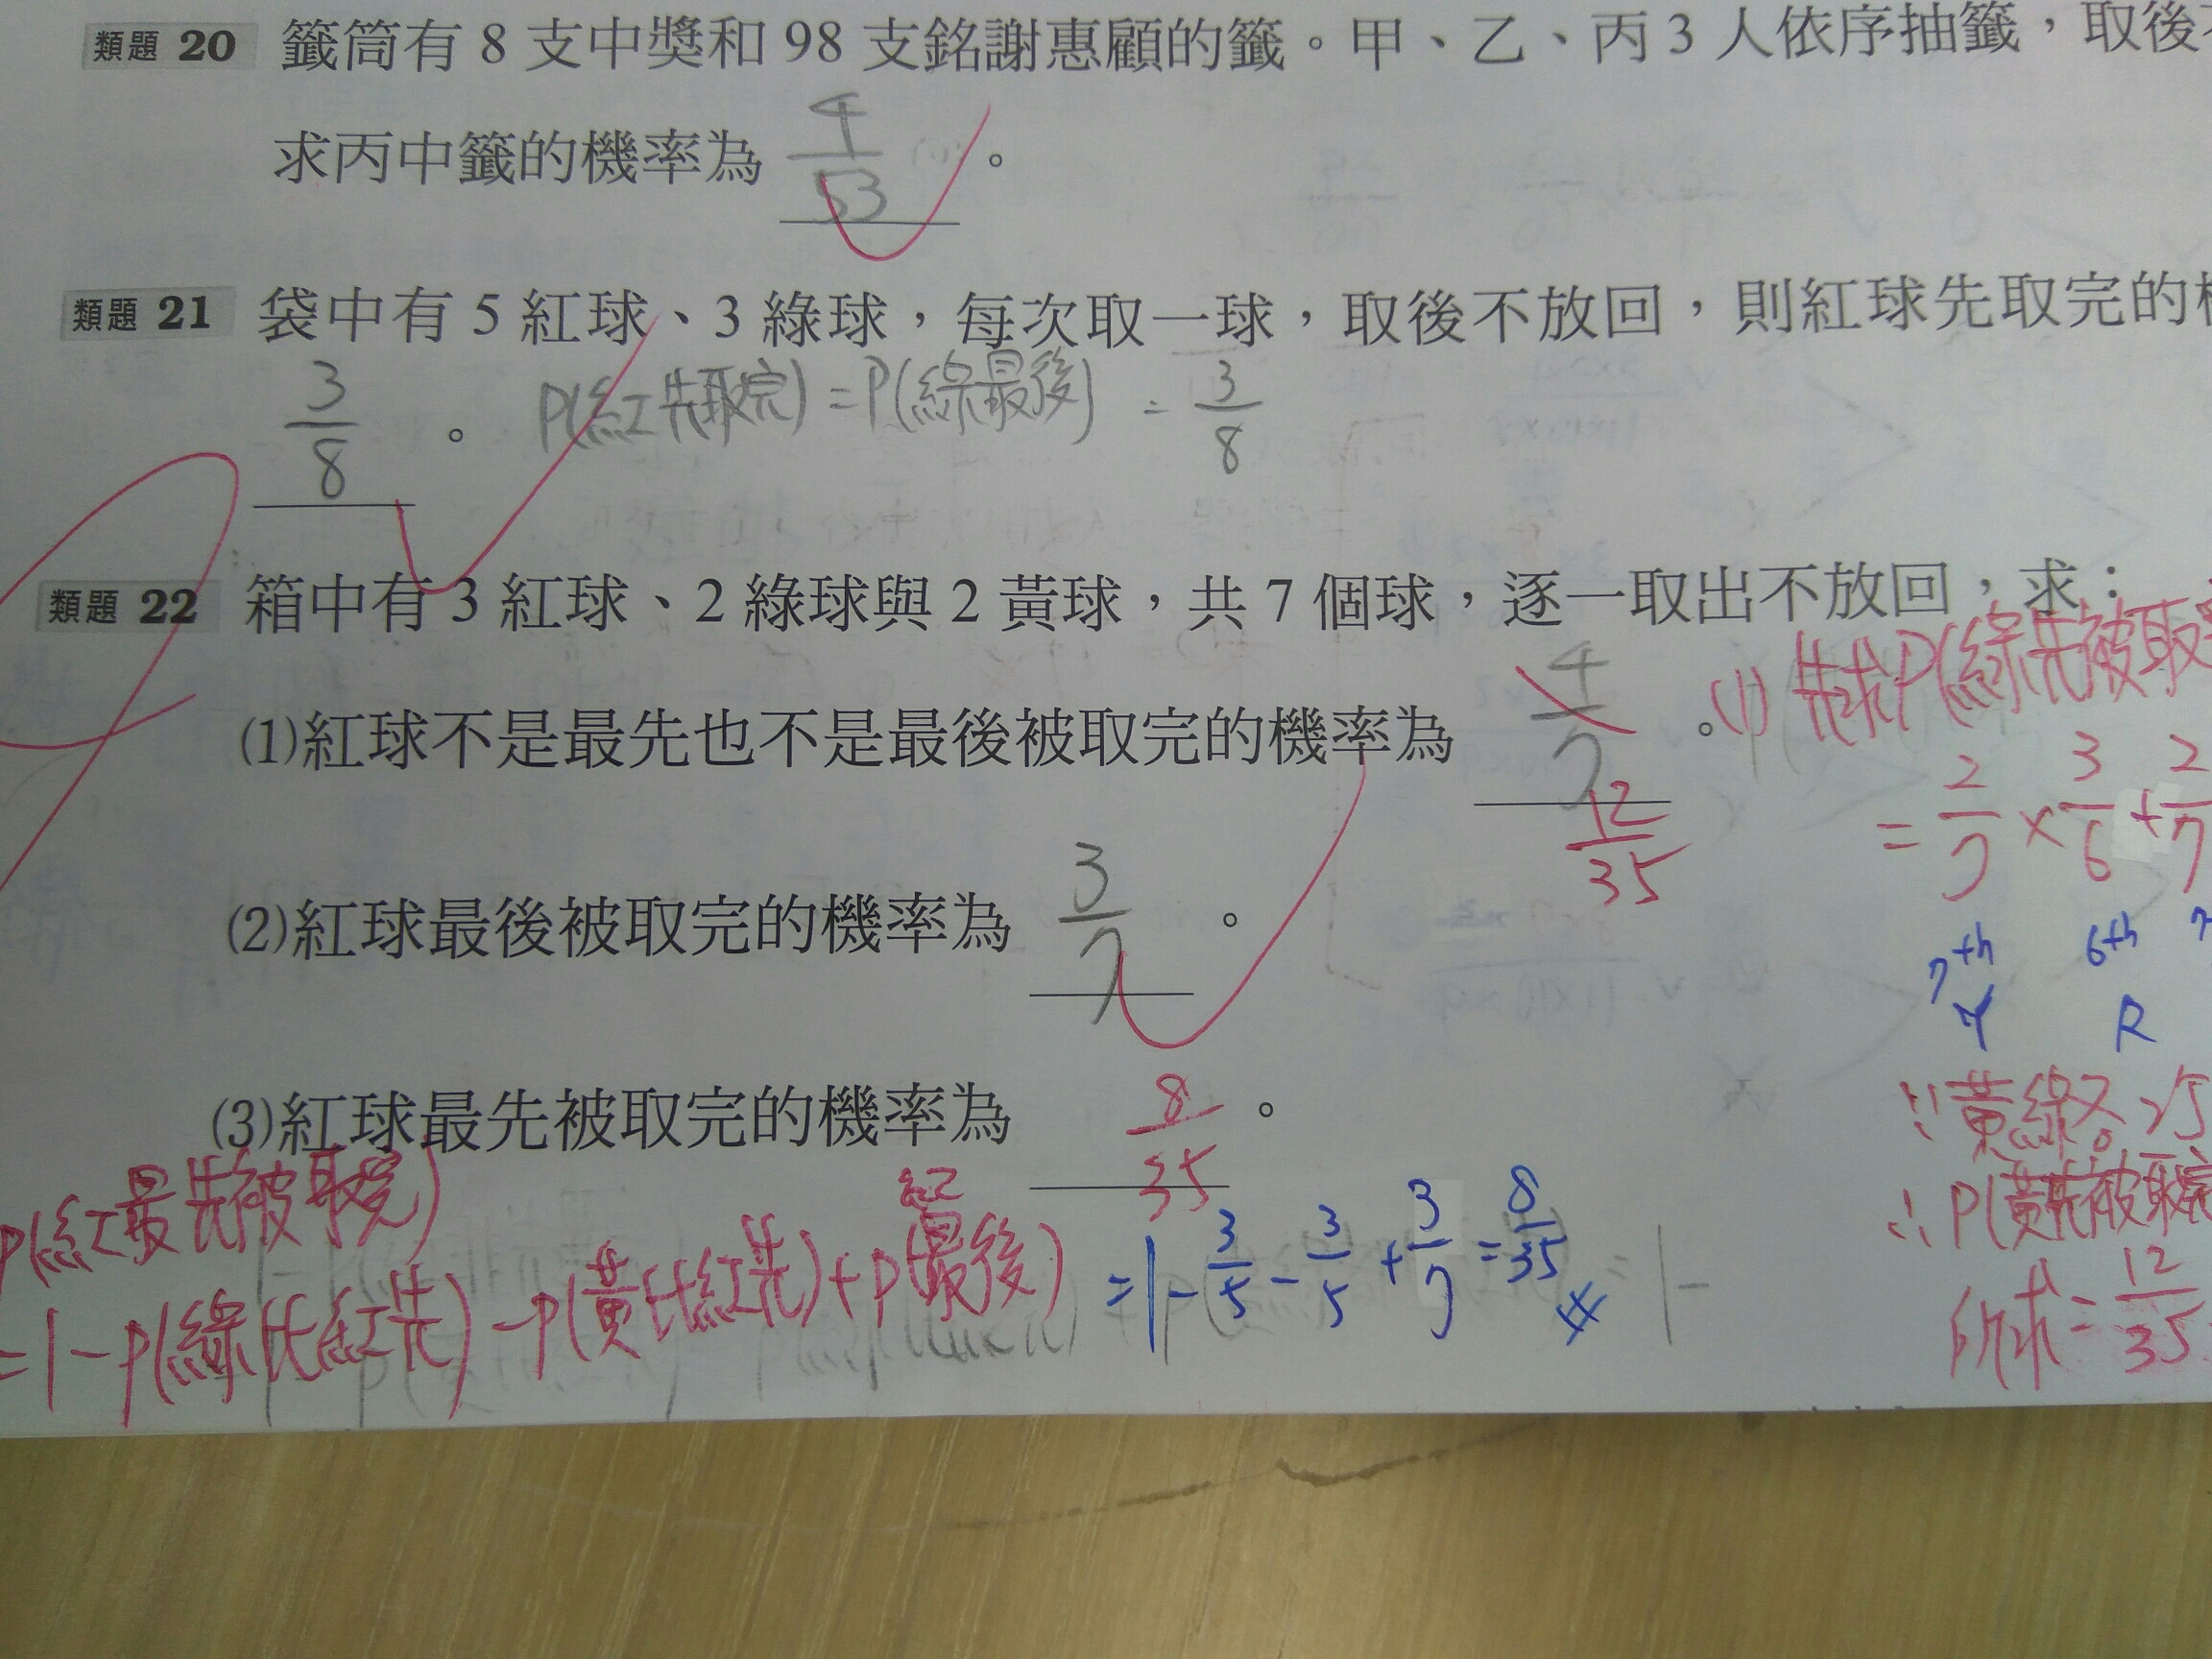 類題 20 籤筒有 8 支中獎和 98 支銘謝惠顧的籤。甲、乙、丙 3 人依序抽籤，取後
求丙中籤的機率為 4/53 。
類題 21 袋中有 5 紅球、3 綠球，每次取一球，取後不放回，則紅球先取完的
3/8 。 P(紅先取完) = P(綠最後) = 3/8
類題 22 箱中有 3 紅球、2 綠球與 2 黃球，共 7 個球，逐一取出不放回，求：
(1)紅球不是最先也不是最後被取完的機率為 4/7 。
12/35
(1) 先求P(綠先被取
= 2/7 × 3/6 + 2/7
7th 6th 7
Y R
(2)紅球最後被取完的機率為 3/7 。
∵黃綠
∴P(黃先被取完
所求 = 12/35
(3)紅球最先被取完的機率為 8/35 。
P(紅最先被取完)
=1-P(綠比紅先)-P(黃比紅先)+P(紅最後) =1-3/5-3/5+3/7=8/35
=1-